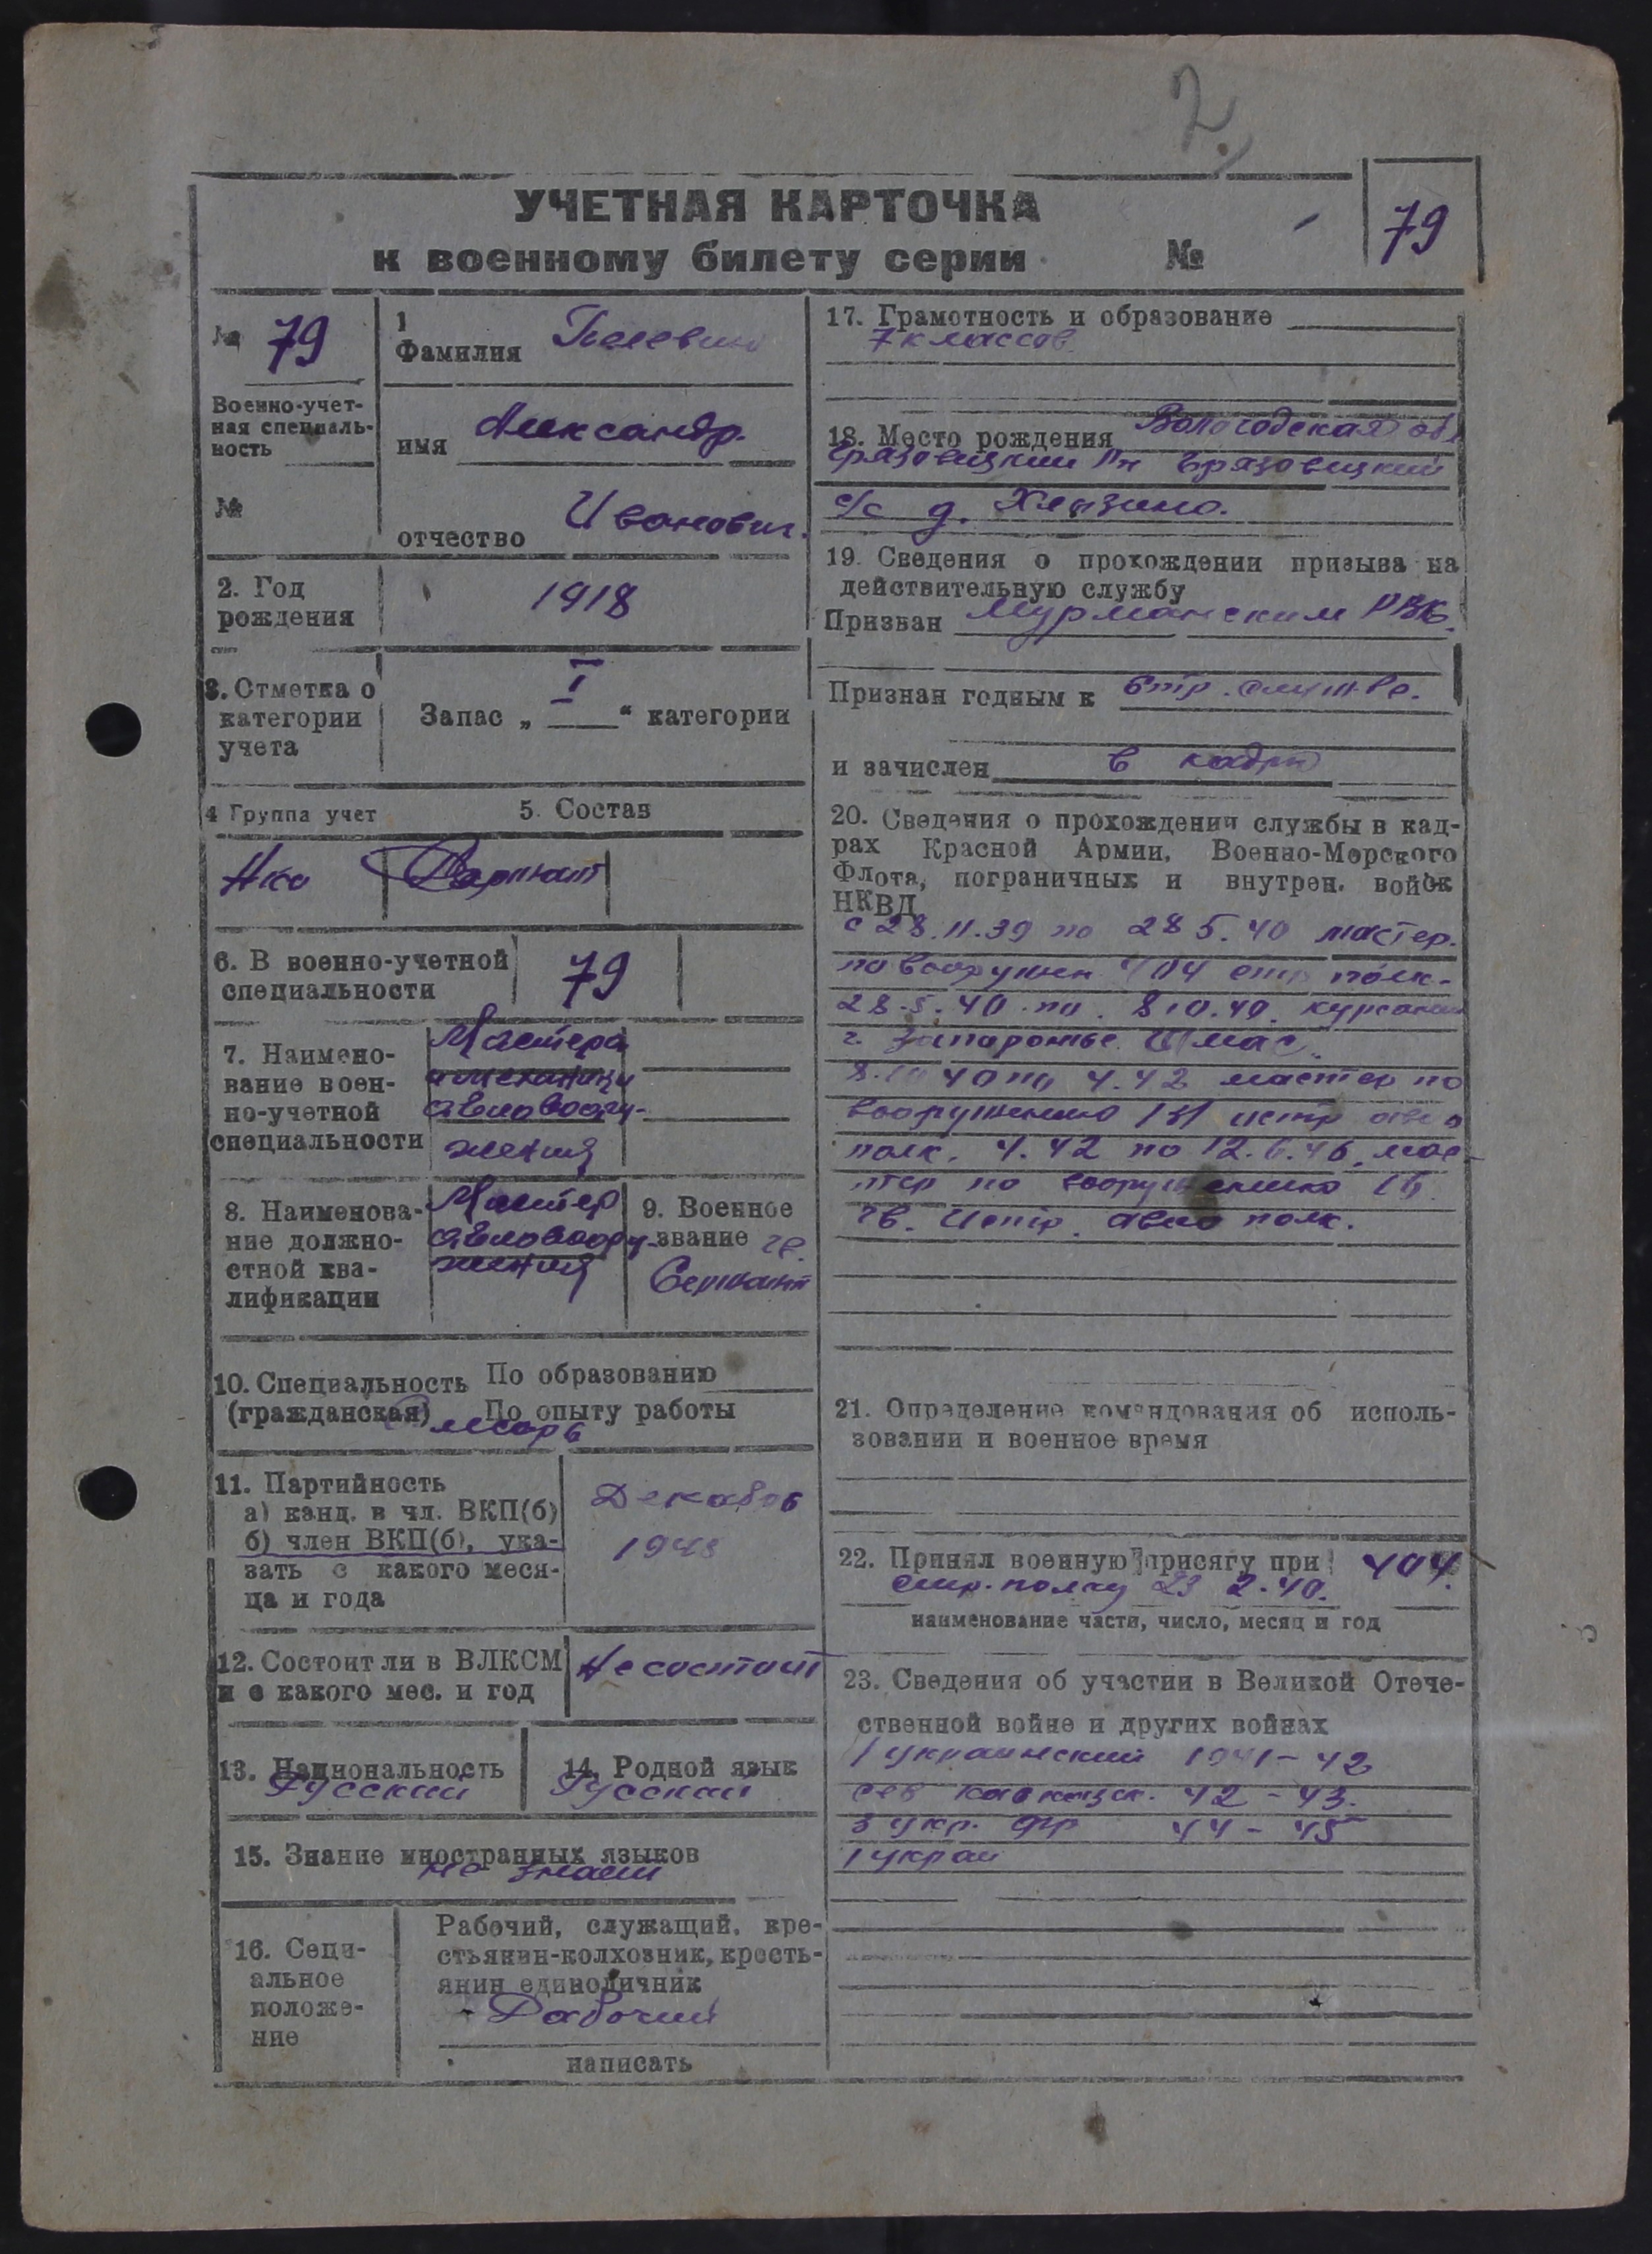 2
УЧЕТНАЯ КАРТОЧКА
к военному билету серии № 79
№ 79
Военно-учет-
ная специаль-
ность
№
1
Фамилия
имя Александр.
отчество Иванович.
2. Год
рождения
1918
3. Отметка о
категории
учета
Запас „ I “ категории
4 Группа учет
5. Состав
6. В военно-учетной
специальности
79
7. Наимено-
вание воен-
но-учетной
специальности
Мастера
авиавоору-
жения
8. Наименова-
ние должно-
стной ква-
лификации
Мастер
авиавоору-
жения
9. Военное
звание гв.
Сержант
10. Специальность По образованию
(гражданская) По опыту работы
Слесарь
11. Партийность
а) канд. в чл. ВКП(б)
б) член ВКП(б), ука-
зать с какого меся-
ца и года
Декабрь
12. Состоит ли в ВЛКСМ
и с какого мес. и год
Не состоит
13. Национальность
Русский
14. Родной язык
Русский
15. Знание иностранных языков
не знает
16. Соци-
альное
положе-
ние
Рабочий, служащий, кре-
стьянин-колхозник, кресть-
янин единоличник
Рабочий
написать
17. Грамотность и образование
7 классов
18. Место рождения Вологодская обл
Грязовецкий Рн Грязовецкий
с/с д.
19. Сведения о прохождении призыва на
действительную службу
Призван Мурманским РВК.
Признан годным к стр. службе.
и зачислен в кадры
20. Сведения о прохождении службы в кад-
рах Красной Армии, Военно-Морского
Флота, пограничных и внутрен. войск
НКВД
с 28.11.39 по 28 5.40 мастер.
по вооружен 404 стр полк.
28.5.40 по 8.10.40. курсант
г. Запорожье ШМАС.
8.10 40 по 4.42 мастер по
вооружению 131 истр авиа
полк. 4.42 по 12.6.46. мас-
тер по вооружению
гв. Истр. авиа полк.
21. Определение командования об исполь-
зовании и военное время
22. Принял военную присягу при 404.
стр. полку 23 2.40.
наименование части, число, месяц и год
23. Сведения об участии в Великой Отече-
ственной войне и других войнах
1 украинский 1941-42
сев кавказск. 42-43.
3 укр. фр 44-45
1 украи